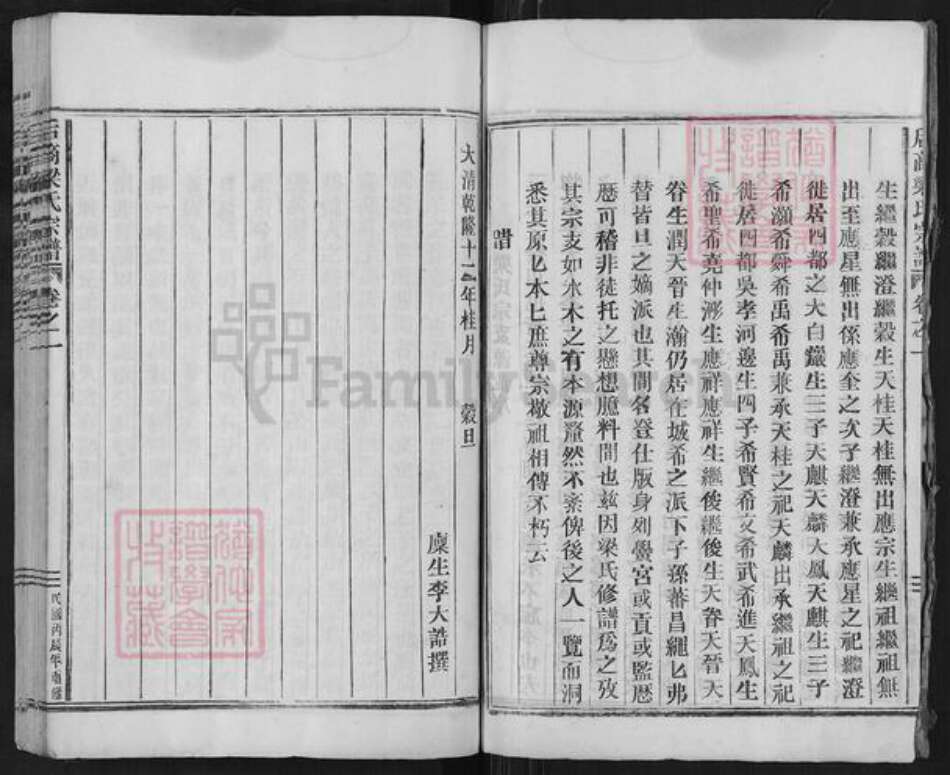 生繼穀繼澄繼穀生天桂天桂無出應宗生繼祖繼祖無
出至應星無出係應奎之次子繼澄兼承應星之祀繼澄
徙居四都之大白巖生三子天麒天麟天鳳天麒生三子
希灝希舜希禹希禹兼承天桂之祀天麟出承繼祖之祀
徙居四都吳孝河邊生四子希賢希文希武希進天鳳生
希聖希堯仲渺生應祥應祥生繼俊繼俊生天眷天晉天
眷生潤天晉生瀚仍居在城希之派下子孫蕃昌繩匕弗
替皆旦之嫡派也其間名登仕版身列黌宮或貢或監歷
歷可稽非徒托之懸想臆料間也茲因梁氏修譜爲之攷
其宗支如水木之有本源釐然不紊俾後之人一覽而洞
悉其原匕木匕庶尊宗敬祖相傳不朽云
譜
大清乾隆十二年桂月 穀旦
廩生李大誥撰
梁氏宗譜 卷之一
民國丙辰年重修
FamilySearch